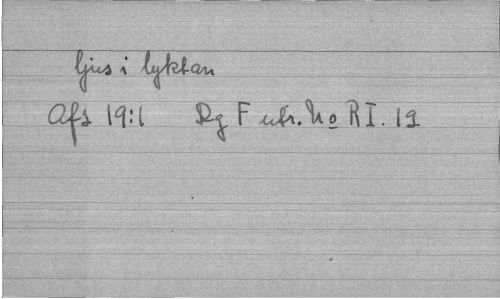 ljus i lyktan
Afs 19:1 Dg F utr. No R I. 19